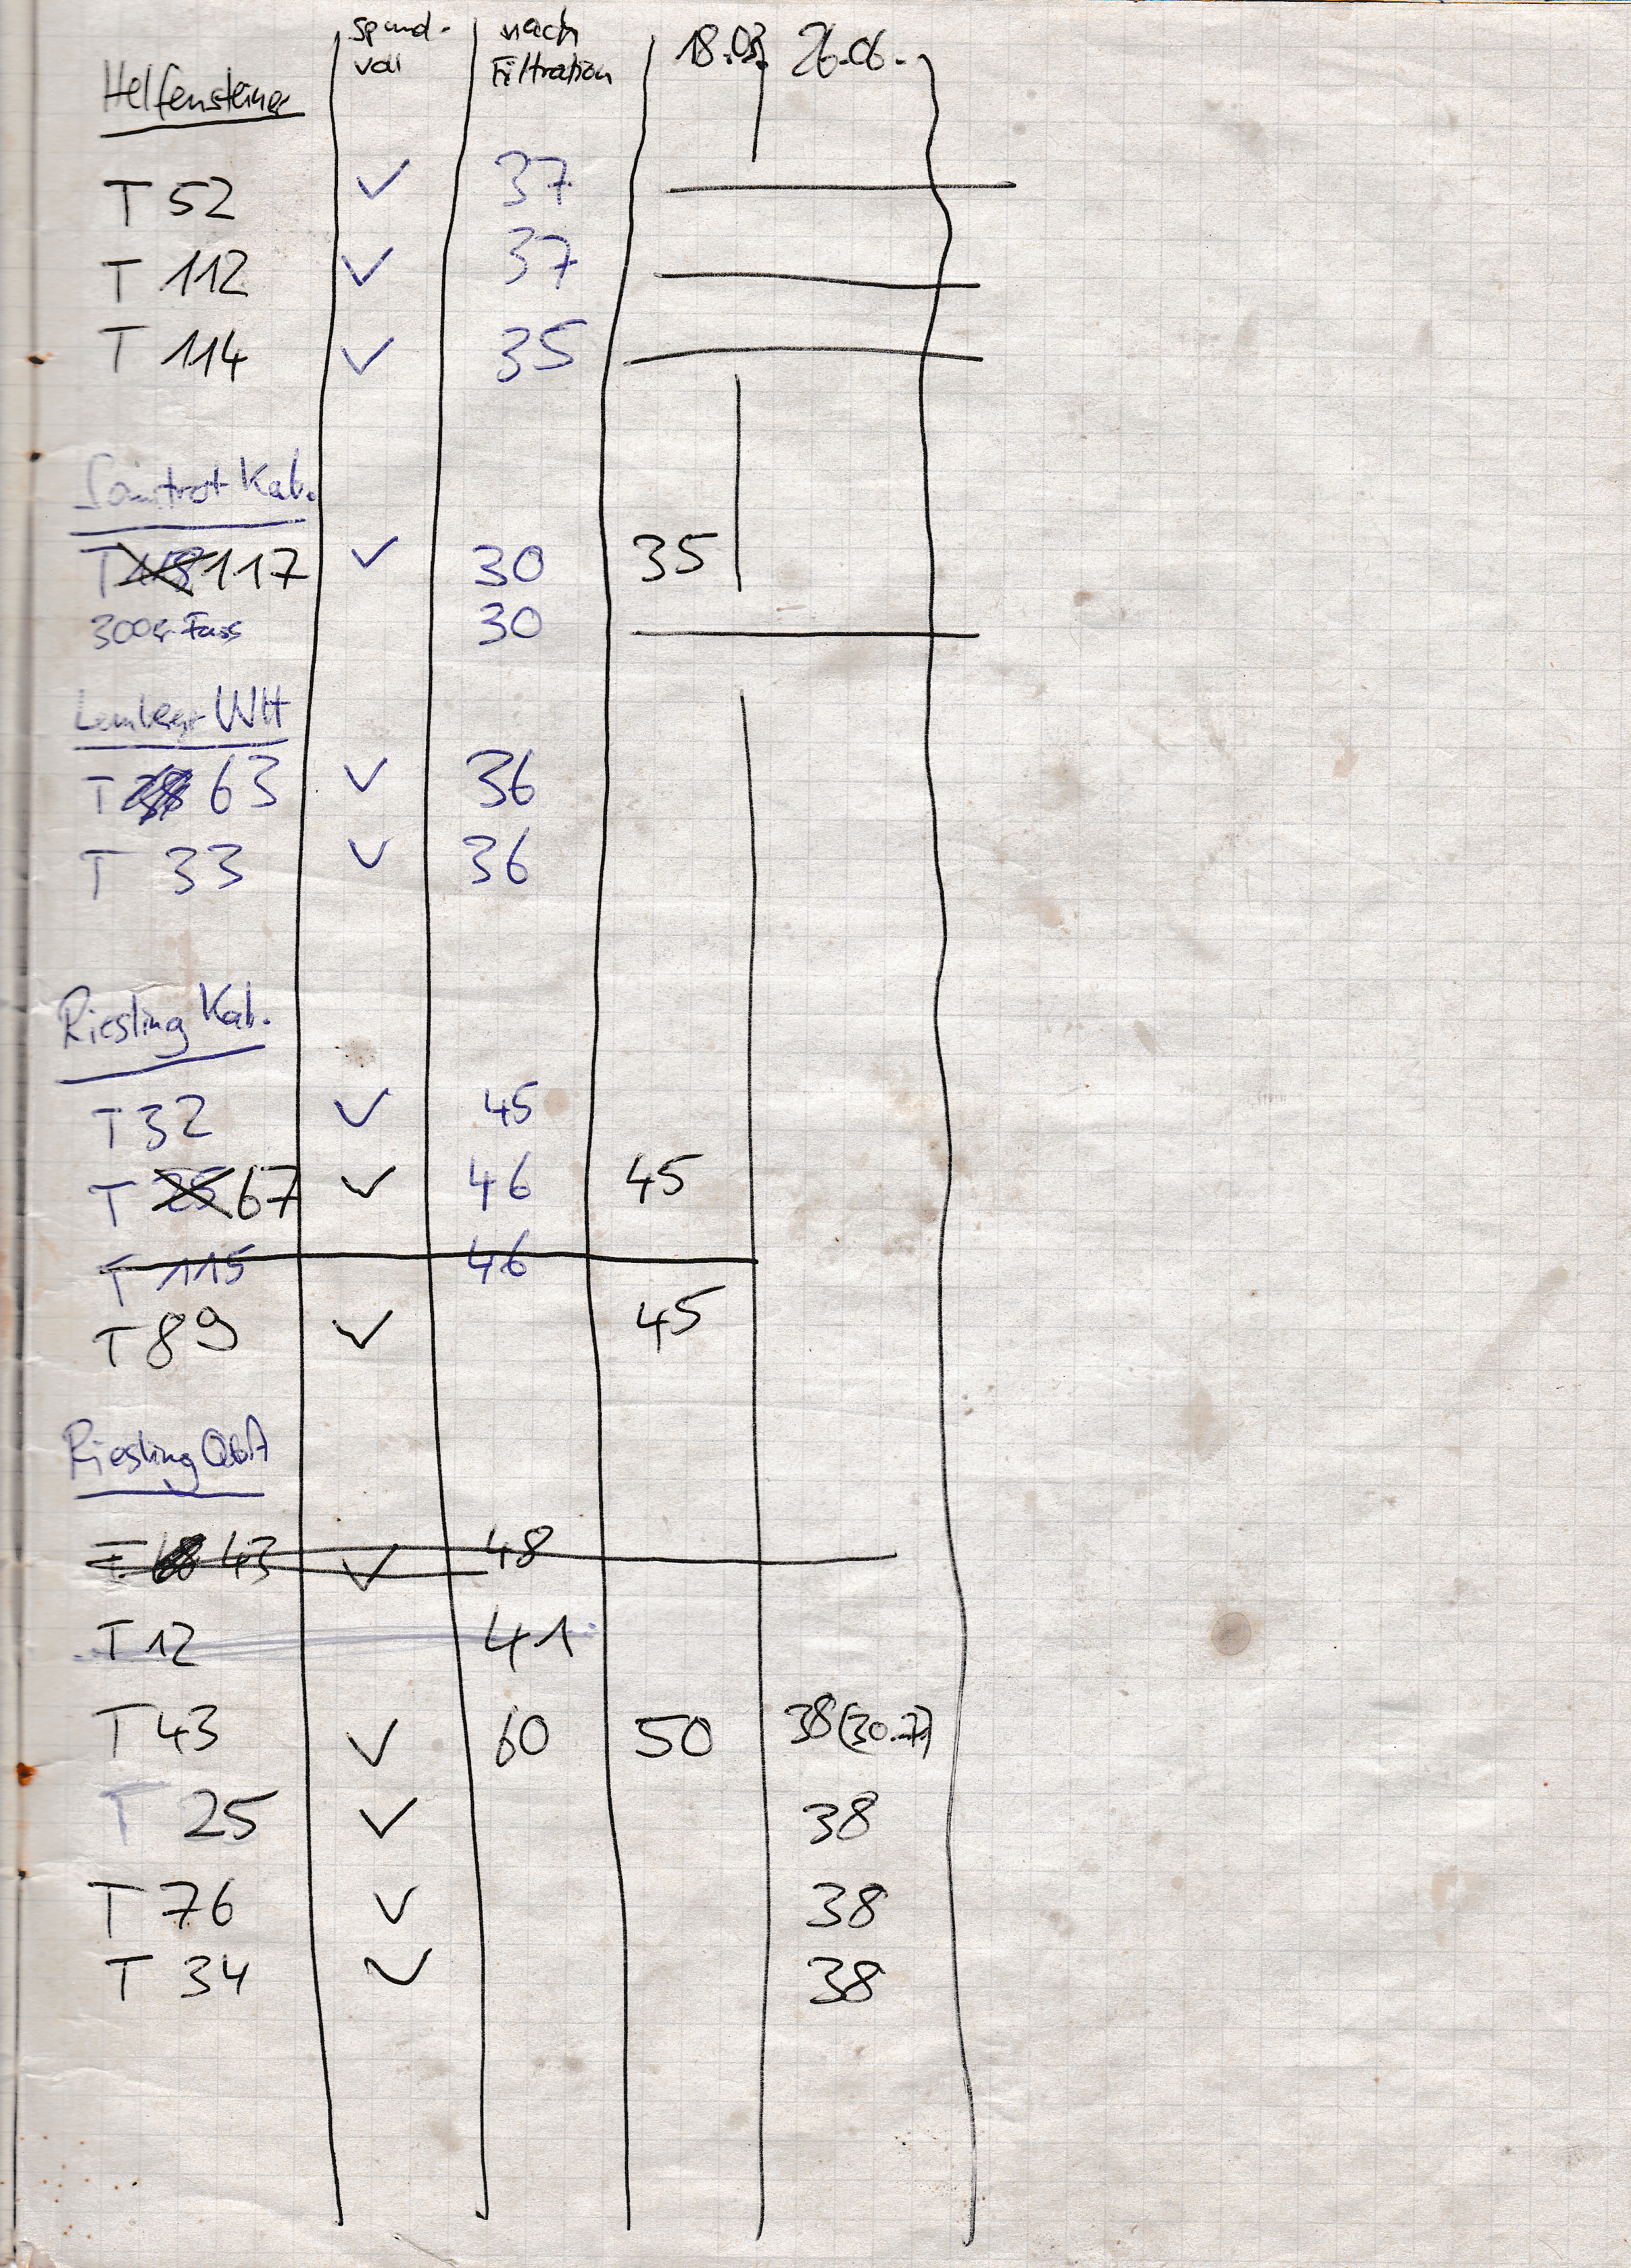 Helfensteiner spund- nach 18.03. 26.06.
voll Filtration
T 52 ✓ 37
T 112 ✓ 37
T 114 ✓ 35
Samtrot Kab.
T 117 ✓ 30 35
300er Fass 30
Lemberger WH
T 63 ✓ 36
T 33 ✓ 36
Riesling Kab.
T 32 ✓ 45
T 67 ✓ 46 45
T 115 46
T 89 ✓ 45
Riesling QbA
T 43 ✓ 48
T 12 41
T 43 ✓ 60 50 38 (30.7.)
T 25 ✓ 38
T 76 ✓ 38
T 34 ✓ 38